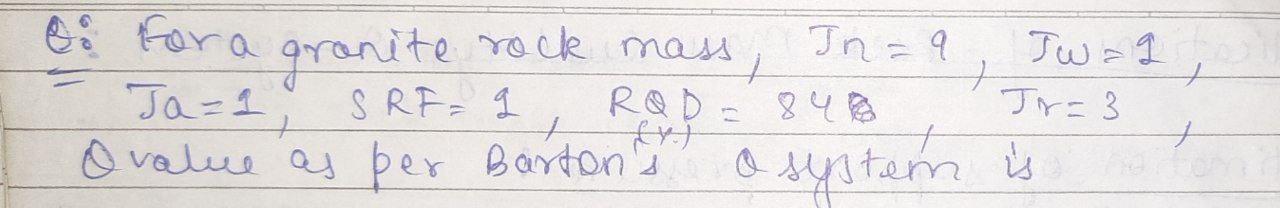 Q: For a granite rock mass, Jn = 9, Jw = 1,
Ja = 1, SRF = 1, RQD = 84, Jr = 3,
(%)
Q value as per Barton's Q system is